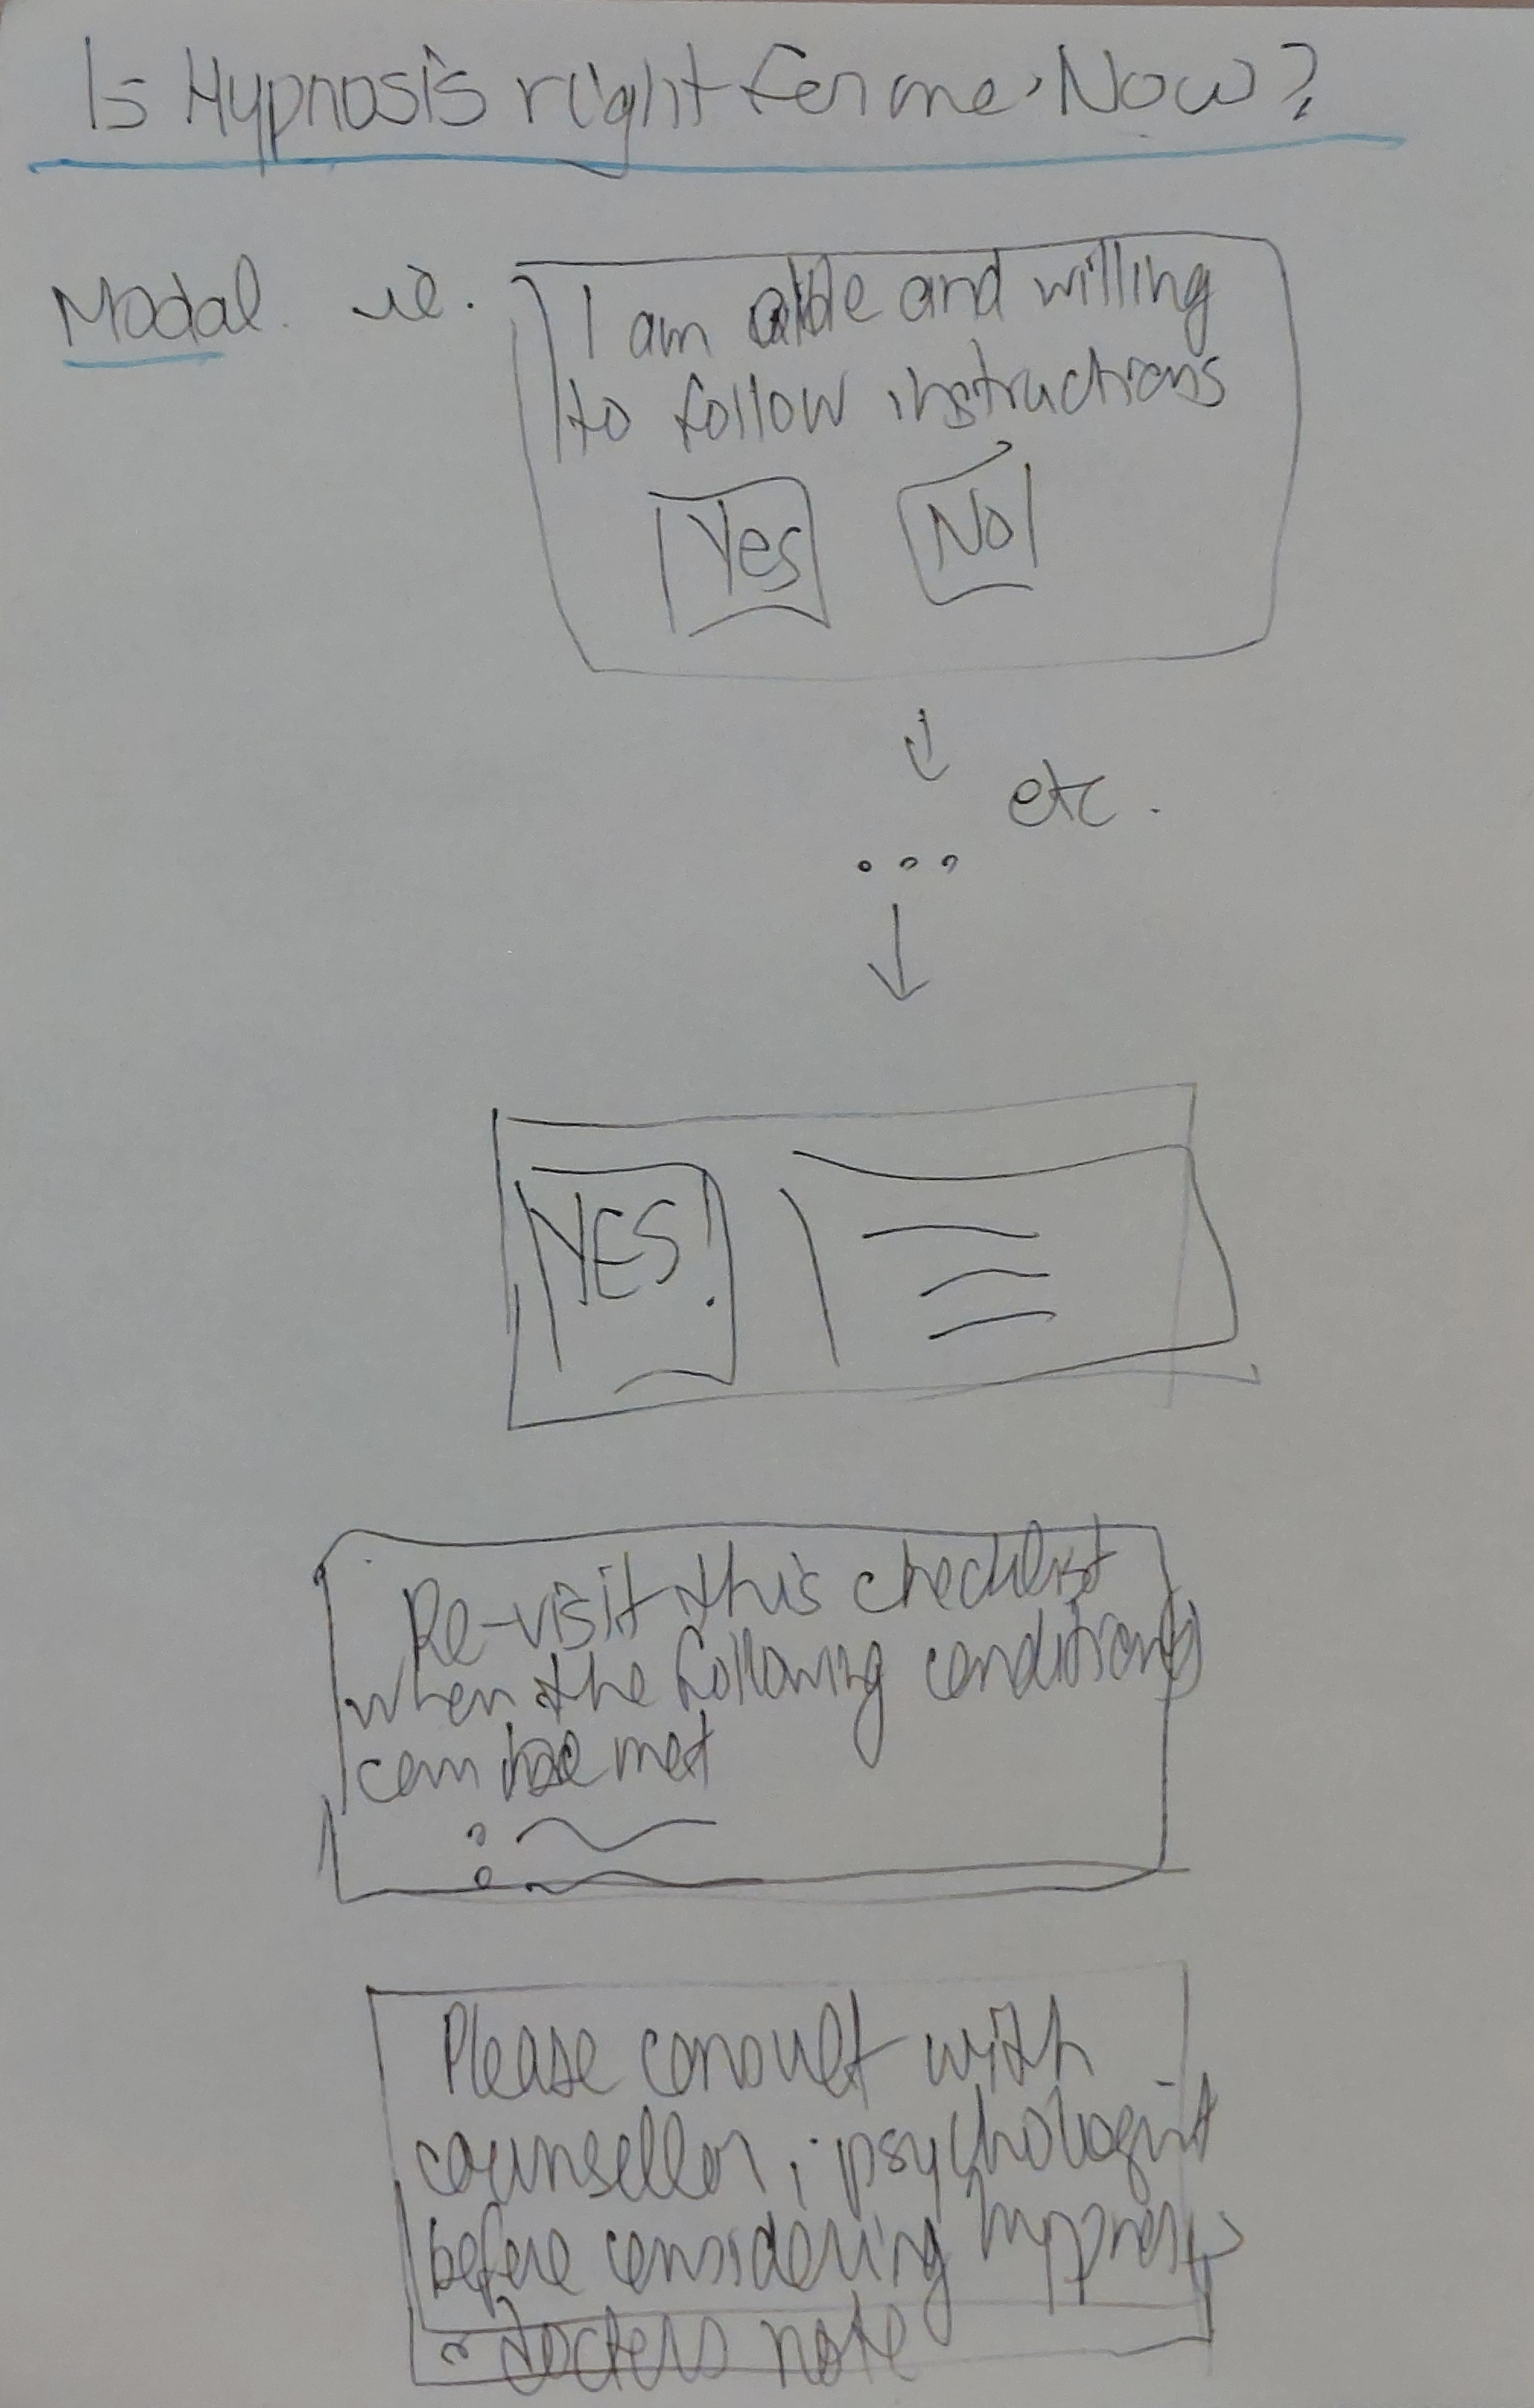 Is Hypnosis right for me, Now?
Modal. ie.
I am able and willing
to follow instructions
Yes No
etc.
...
YES!
Re-visit this checklist
when the following conditions
can be met
Please consult with
counsellor, psychologist
before considering hypnosis
docters note